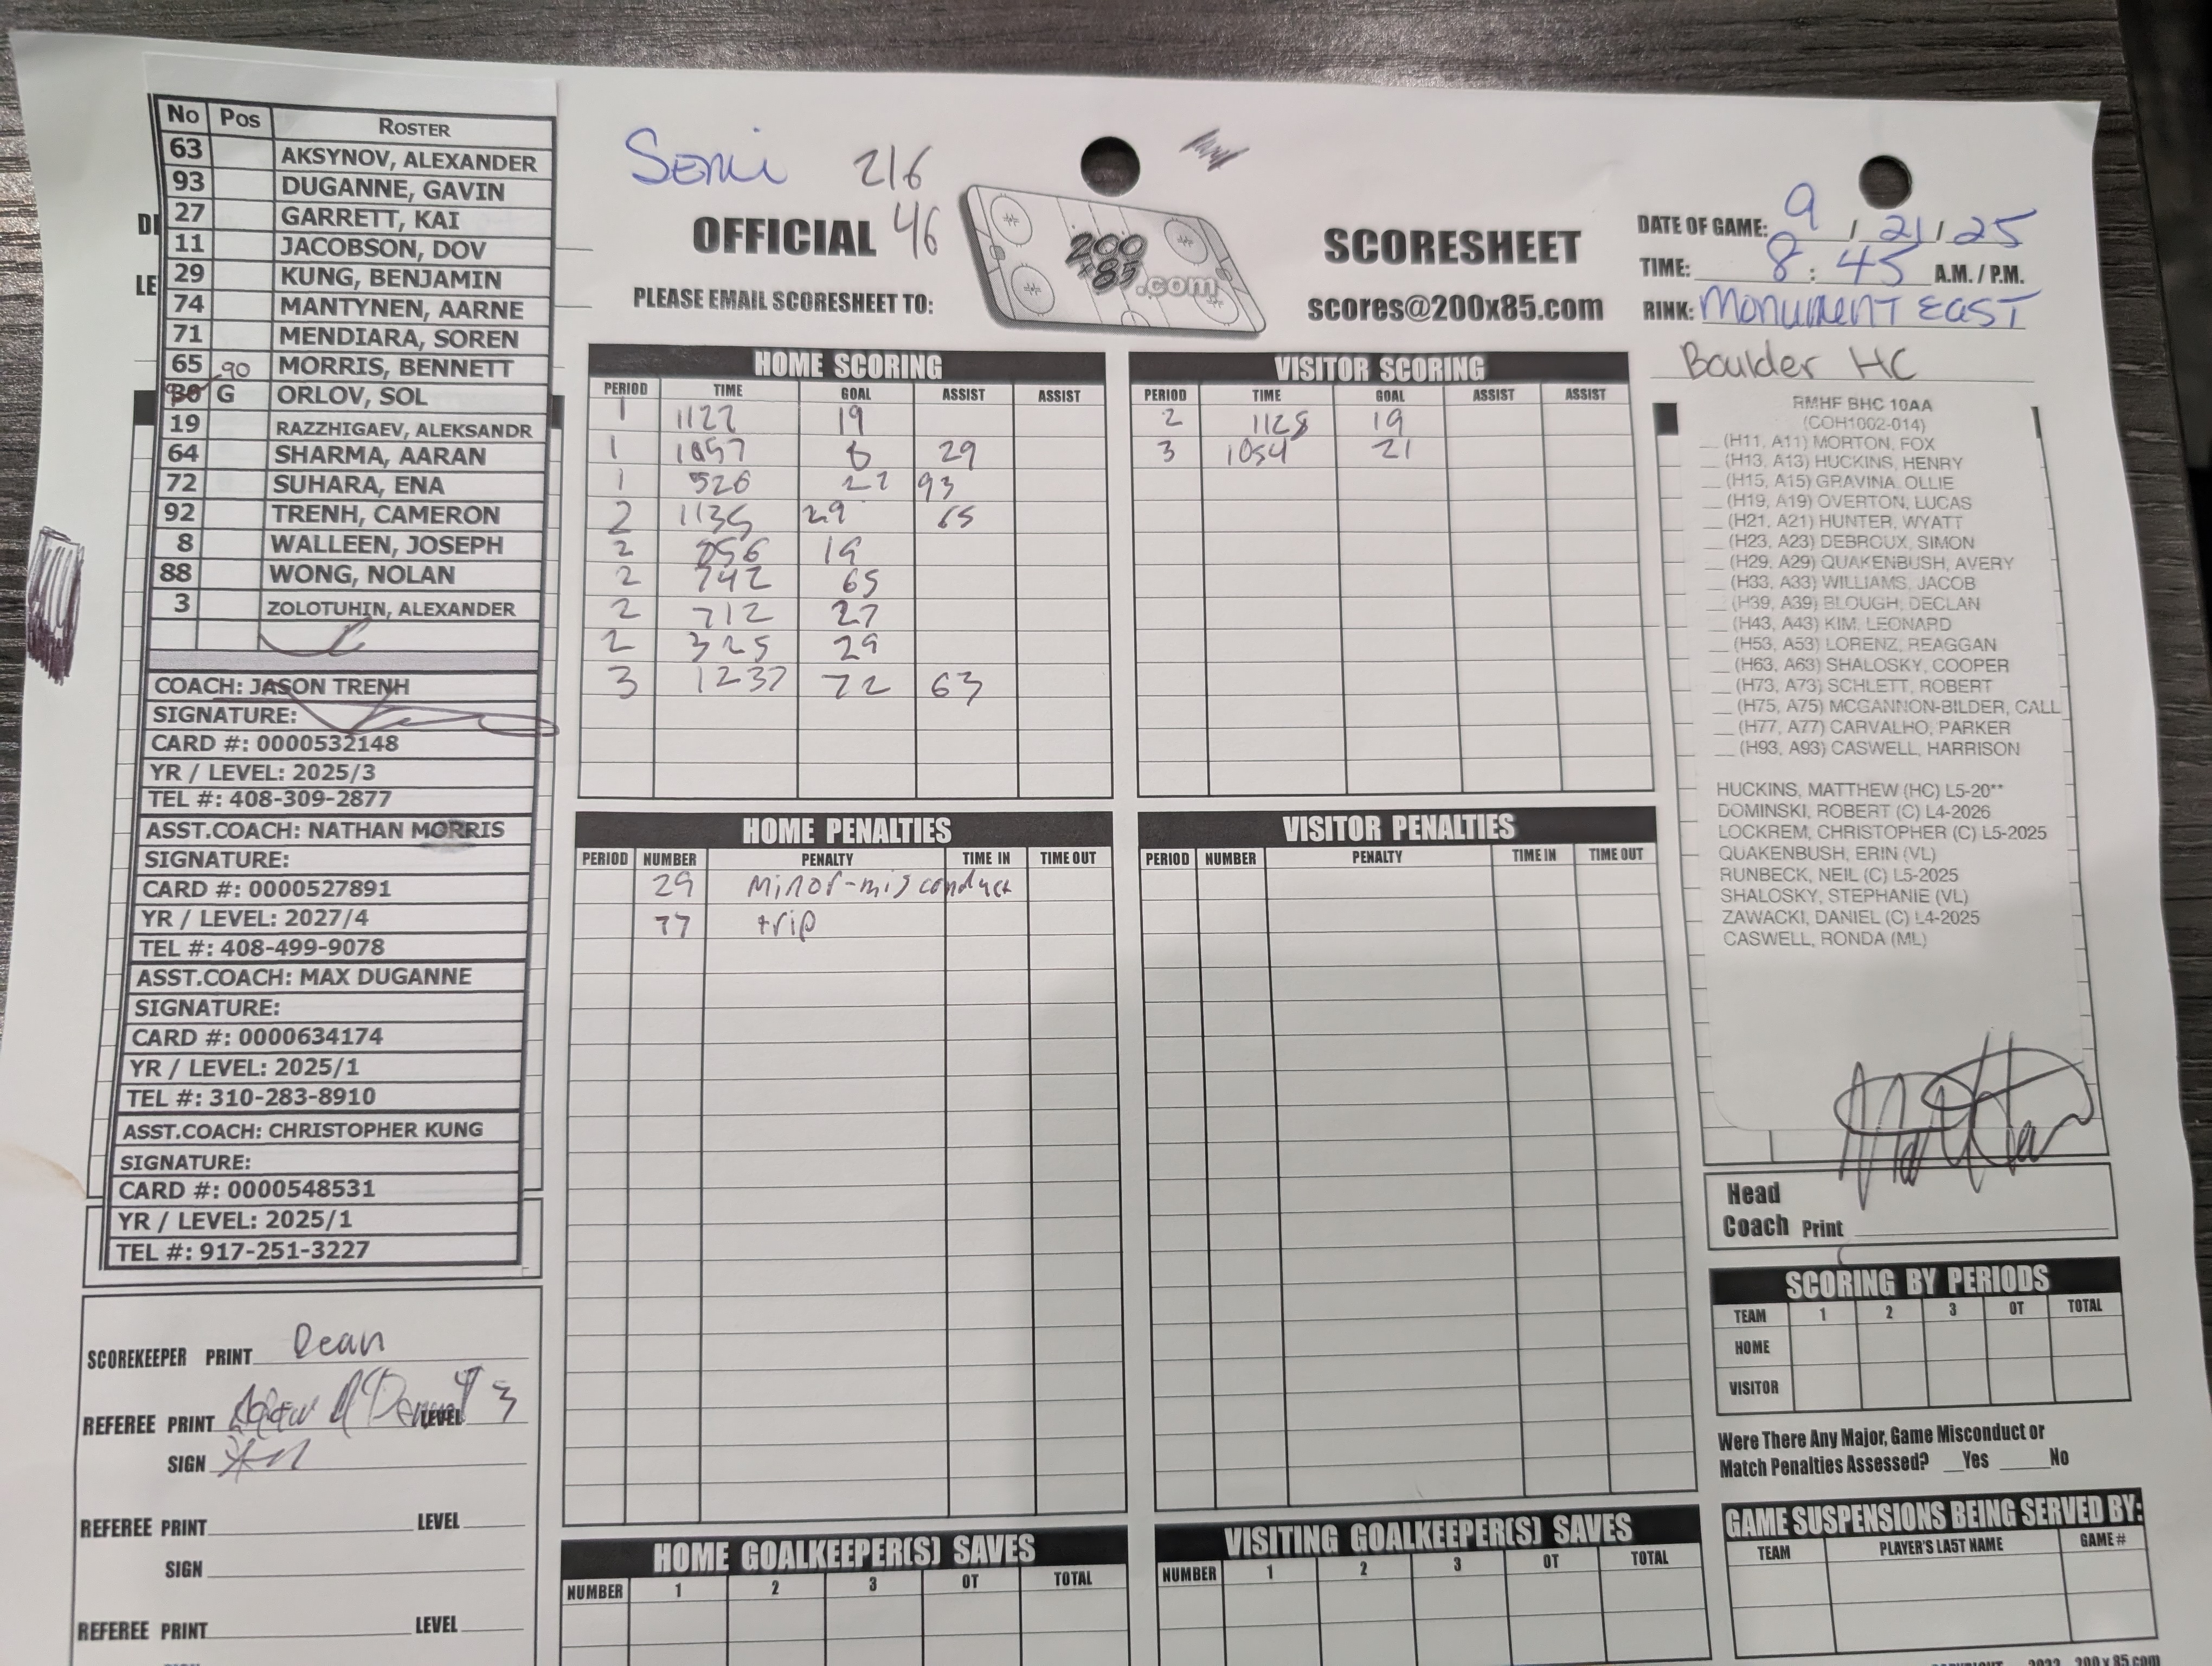 No Pos ROSTER
63 AKSYNOV, ALEXANDER
93 DUGANNE, GAVIN
27 GARRETT, KAI
11 JACOBSON, DOV
29 KUNG, BENJAMIN
74 MANTYNEN, AARNE
71 MENDIARA, SOREN
65 MORRIS, BENNETT
90
30 G ORLOV, SOL
19 RAZZHIGAEV, ALEKSANDR
64 SHARMA, AARAN
72 SUHARA, ENA
92 TRENH, CAMERON
8 WALLEEN, JOSEPH
88 WONG, NOLAN
3 ZOLOTUHIN, ALEXANDER
COACH: JASON TRENH
SIGNATURE:
CARD #: 0000532148
YR / LEVEL: 2025/3
TEL #: 408-309-2877
ASST.COACH: NATHAN MORRIS
SIGNATURE:
CARD #: 0000527891
YR / LEVEL: 2027/4
TEL #: 408-499-9078
ASST.COACH: MAX DUGANNE
SIGNATURE:
CARD #: 0000634174
YR / LEVEL: 2025/1
TEL #: 310-283-8910
ASST.COACH: CHRISTOPHER KUNG
SIGNATURE:
CARD #: 0000548531
YR / LEVEL: 2025/1
TEL #: 917-251-3227
SCOREKEEPER PRINT Dean
REFEREE PRINT LEVEL 3
SIGN
REFEREE PRINT LEVEL
SIGN
REFEREE PRINT LEVEL
Semi 216
46
OFFICIAL 200 x 85 .com SCORESHEET
PLEASE EMAIL SCORESHEET TO: scores@200x85.com
DATE OF GAME: 9 / 21 / 25
TIME: 8 : 45 A.M. / P.M.
RINK: Monument East
HOME SCORING
PERIOD TIME GOAL ASSIST ASSIST
1 1127 19
1 1057 8 29
1 526 27 93
2 1135 29 65
2 856 19
2 742 65
2 712 27
2 325 29
3 1237 72 63
VISITOR SCORING
PERIOD TIME GOAL ASSIST ASSIST
2 1128 19
3 1054 21
HOME PENALTIES
PERIOD NUMBER PENALTY TIME IN TIME OUT
29 Minor-misconduct
77 trip
VISITOR PENALTIES
PERIOD NUMBER PENALTY TIME IN TIME OUT
HOME GOALKEEPER(S) SAVES
NUMBER 1 2 3 OT TOTAL
VISITING GOALKEEPER(S) SAVES
NUMBER 1 2 3 OT TOTAL
Boulder HC
RMHF BHC 10AA
(COH1002-014)
(H11, A11) MORTON, FOX
(H13, A13) HUCKINS, HENRY
(H15, A15) GRAVINA, OLLIE
(H19, A19) OVERTON, LUCAS
(H21, A21) HUNTER, WYATT
(H23, A23) DEBROUX, SIMON
(H29, A29) QUAKENBUSH, AVERY
(H33, A33) WILLIAMS, JACOB
(H39, A39) BLOUGH, DECLAN
(H43, A43) KIM, LEONARD
(H53, A53) LORENZ, REAGGAN
(H63, A63) SHALOSKY, COOPER
(H73, A73) SCHLETT, ROBERT
(H75, A75) MCGANNON-BILDER, CALL
(H77, A77) CARVALHO, PARKER
(H93, A93) CASWELL, HARRISON
HUCKINS, MATTHEW (HC) L5-20**
DOMINSKI, ROBERT (C) L4-2026
LOCKREM, CHRISTOPHER (C) L5-2025
QUAKENBUSH, ERIN (VL)
RUNBECK, NEIL (C) L5-2025
SHALOSKY, STEPHANIE (VL)
ZAWACKI, DANIEL (C) L4-2025
CASWELL, RONDA (ML)
Head
Coach Print
SCORING BY PERIODS
TEAM 1 2 3 OT TOTAL
HOME
VISITOR
Were There Any Major, Game Misconduct or
Match Penalties Assessed? __Yes ____No
GAME SUSPENSIONS BEING SERVED BY:
TEAM PLAYER'S LAST NAME GAME #
200 x 85.com